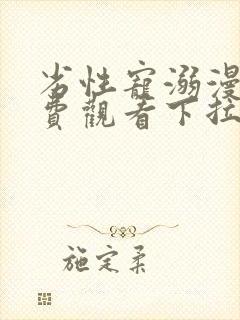 劣性寵溺漫
費觀看下拉
施定柔